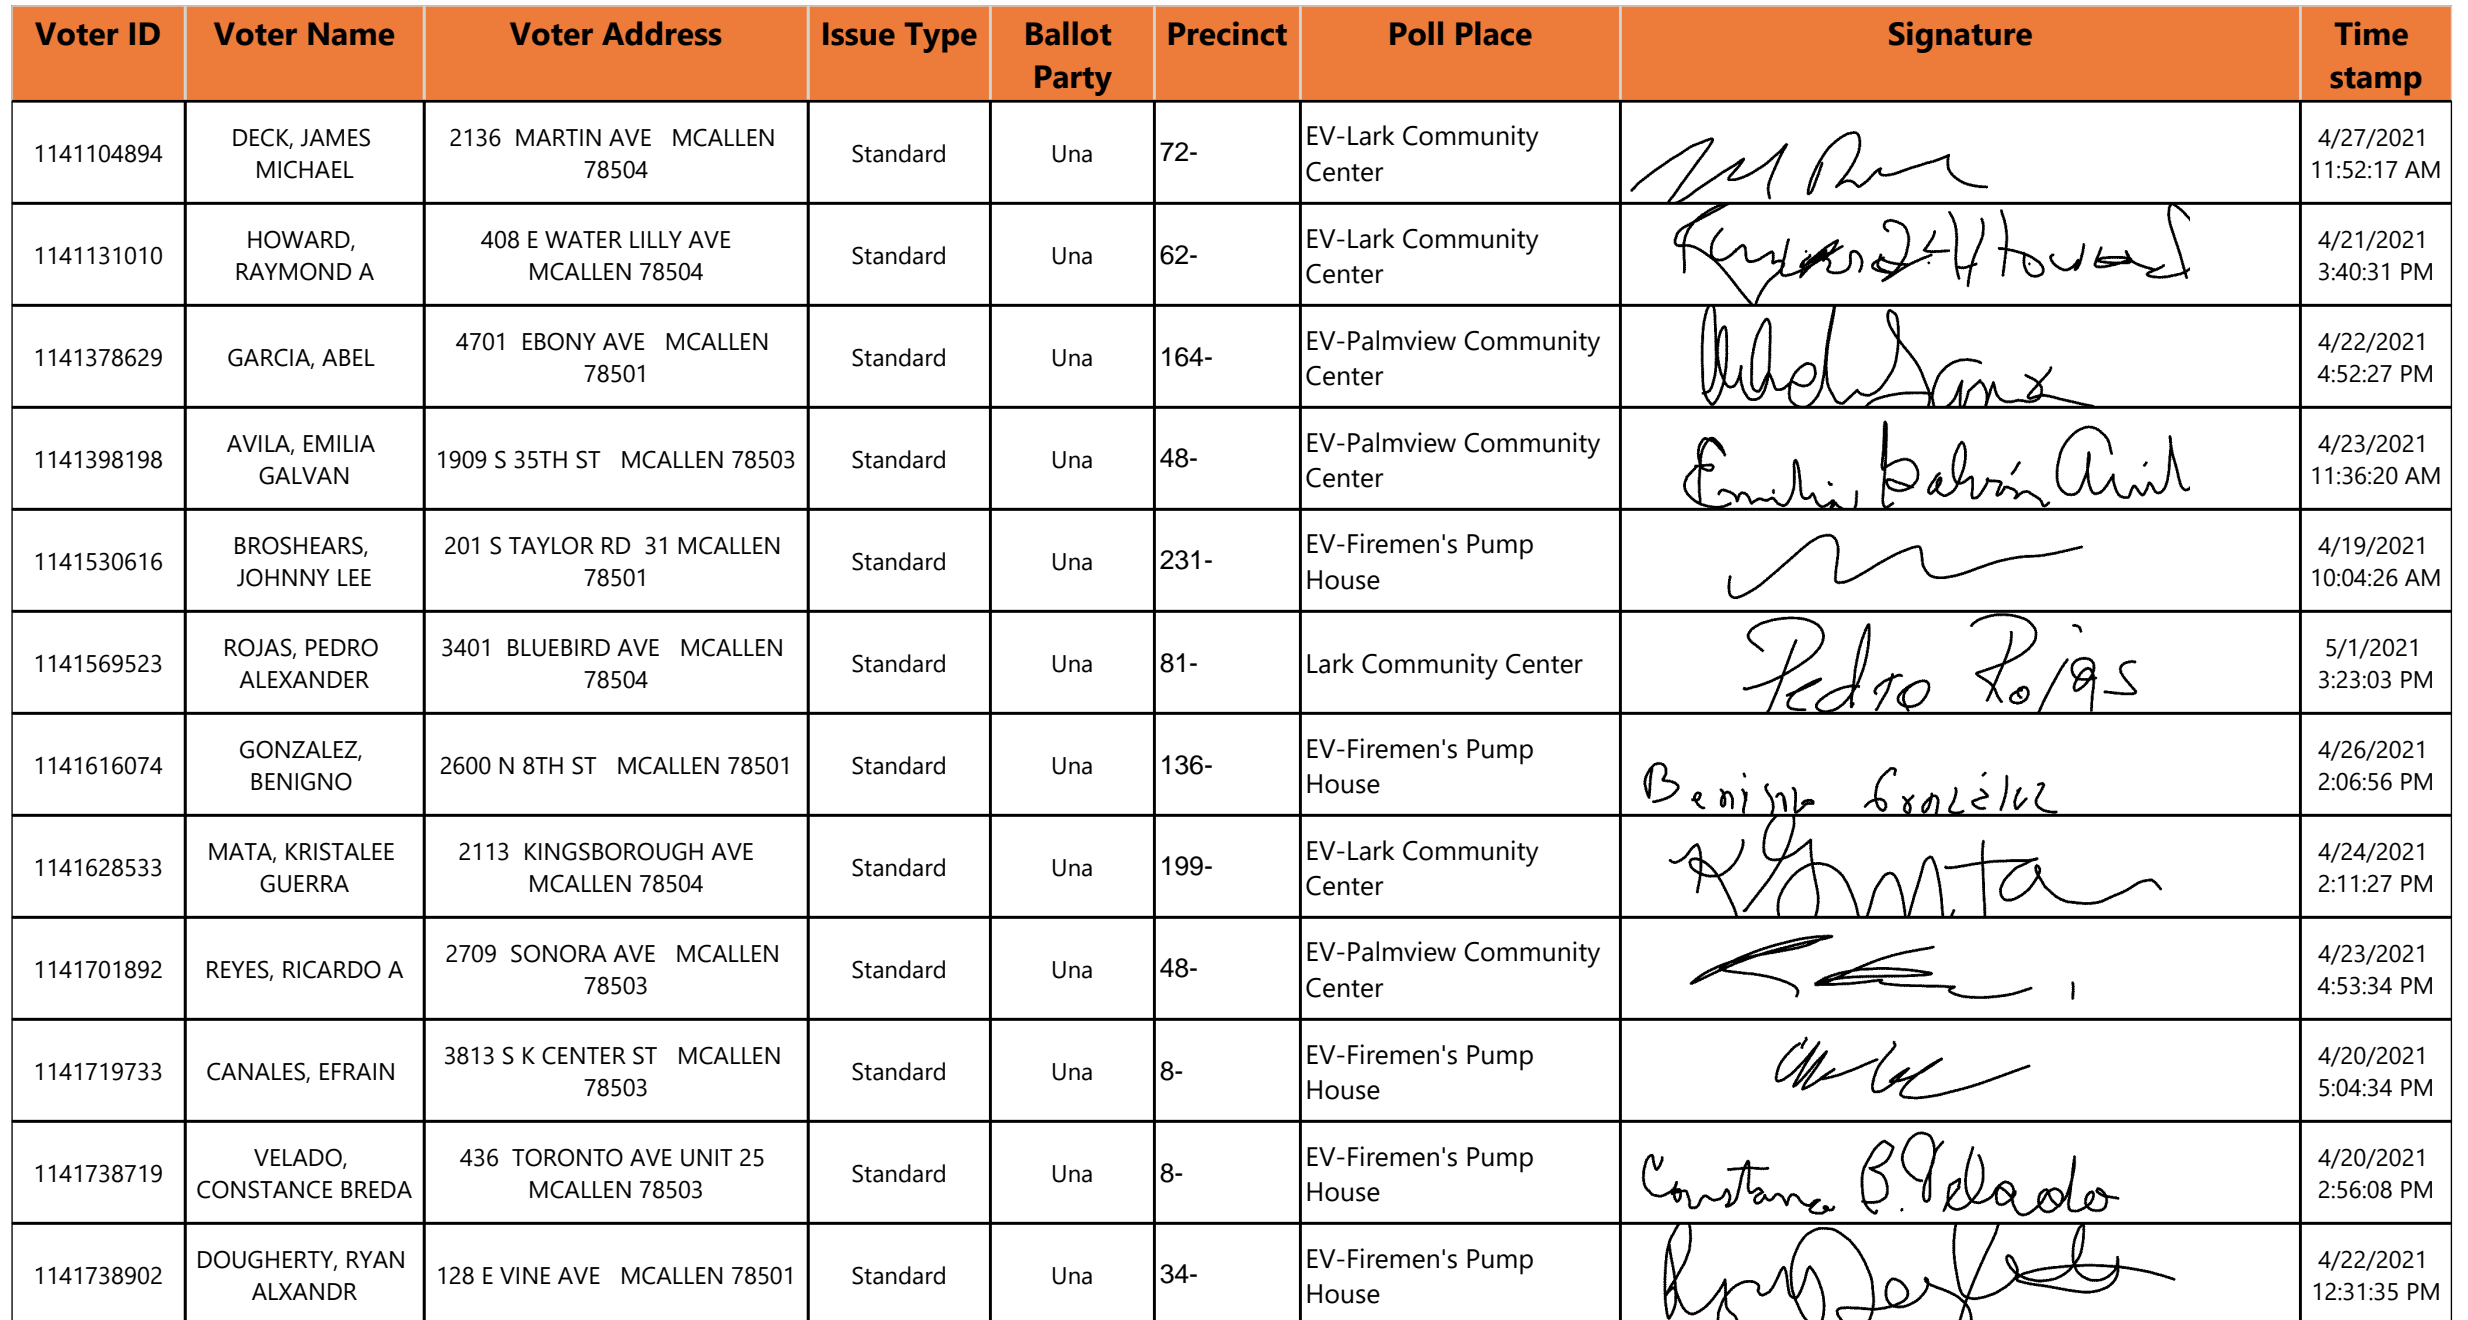 Voter ID Voter Name Voter Address Issue Type Ballot Party Precinct Poll Place Signature Time stamp
1141104894 DECK, JAMES MICHAEL 2136 MARTIN AVE MCALLEN 78504 Standard Una 72- EV-Lark Community Center 4/27/2021 11:52:17 AM
1141131010 HOWARD, RAYMOND A 408 E WATER LILLY AVE MCALLEN 78504 Standard Una 62- EV-Lark Community Center 4/21/2021 3:40:31 PM
1141378629 GARCIA, ABEL 4701 EBONY AVE MCALLEN 78501 Standard Una 164- EV-Palmview Community Center 4/22/2021 4:52:27 PM
1141398198 AVILA, EMILIA GALVAN 1909 S 35TH ST MCALLEN 78503 Standard Una 48- EV-Palmview Community Center Emilia Galván 4/23/2021 11:36:20 AM
1141530616 BROSHEARS, JOHNNY LEE 201 S TAYLOR RD 31 MCALLEN 78501 Standard Una 231- EV-Firemen's Pump House 4/19/2021 10:04:26 AM
1141569523 ROJAS, PEDRO ALEXANDER 3401 BLUEBIRD AVE MCALLEN 78504 Standard Una 81- Lark Community Center Pedro Rojas 5/1/2021 3:23:03 PM
1141616074 GONZALEZ, BENIGNO 2600 N 8TH ST MCALLEN 78501 Standard Una 136- EV-Firemen's Pump House Benigno González 4/26/2021 2:06:56 PM
1141628533 MATA, KRISTALEE GUERRA 2113 KINGSBOROUGH AVE MCALLEN 78504 Standard Una 199- EV-Lark Community Center 4/24/2021 2:11:27 PM
1141701892 REYES, RICARDO A 2709 SONORA AVE MCALLEN 78503 Standard Una 48- EV-Palmview Community Center 4/23/2021 4:53:34 PM
1141719733 CANALES, EFRAIN 3813 S K CENTER ST MCALLEN 78503 Standard Una 8- EV-Firemen's Pump House 4/20/2021 5:04:34 PM
1141738719 VELADO, CONSTANCE BREDA 436 TORONTO AVE UNIT 25 MCALLEN 78503 Standard Una 8- EV-Firemen's Pump House Constance B. Velado 4/20/2021 2:56:08 PM
1141738902 DOUGHERTY, RYAN ALXANDR 128 E VINE AVE MCALLEN 78501 Standard Una 34- EV-Firemen's Pump House 4/22/2021 12:31:35 PM